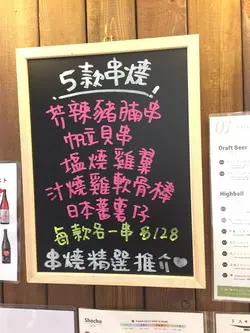 5款串燒!
芥辣豬腩串
帆立貝串
塩燒雞翼
汁燒雞軟骨棒
日本蕃薯仔
每款各一串 $128
串燒精選推介
01
Draft Beer
Highball
Shochu